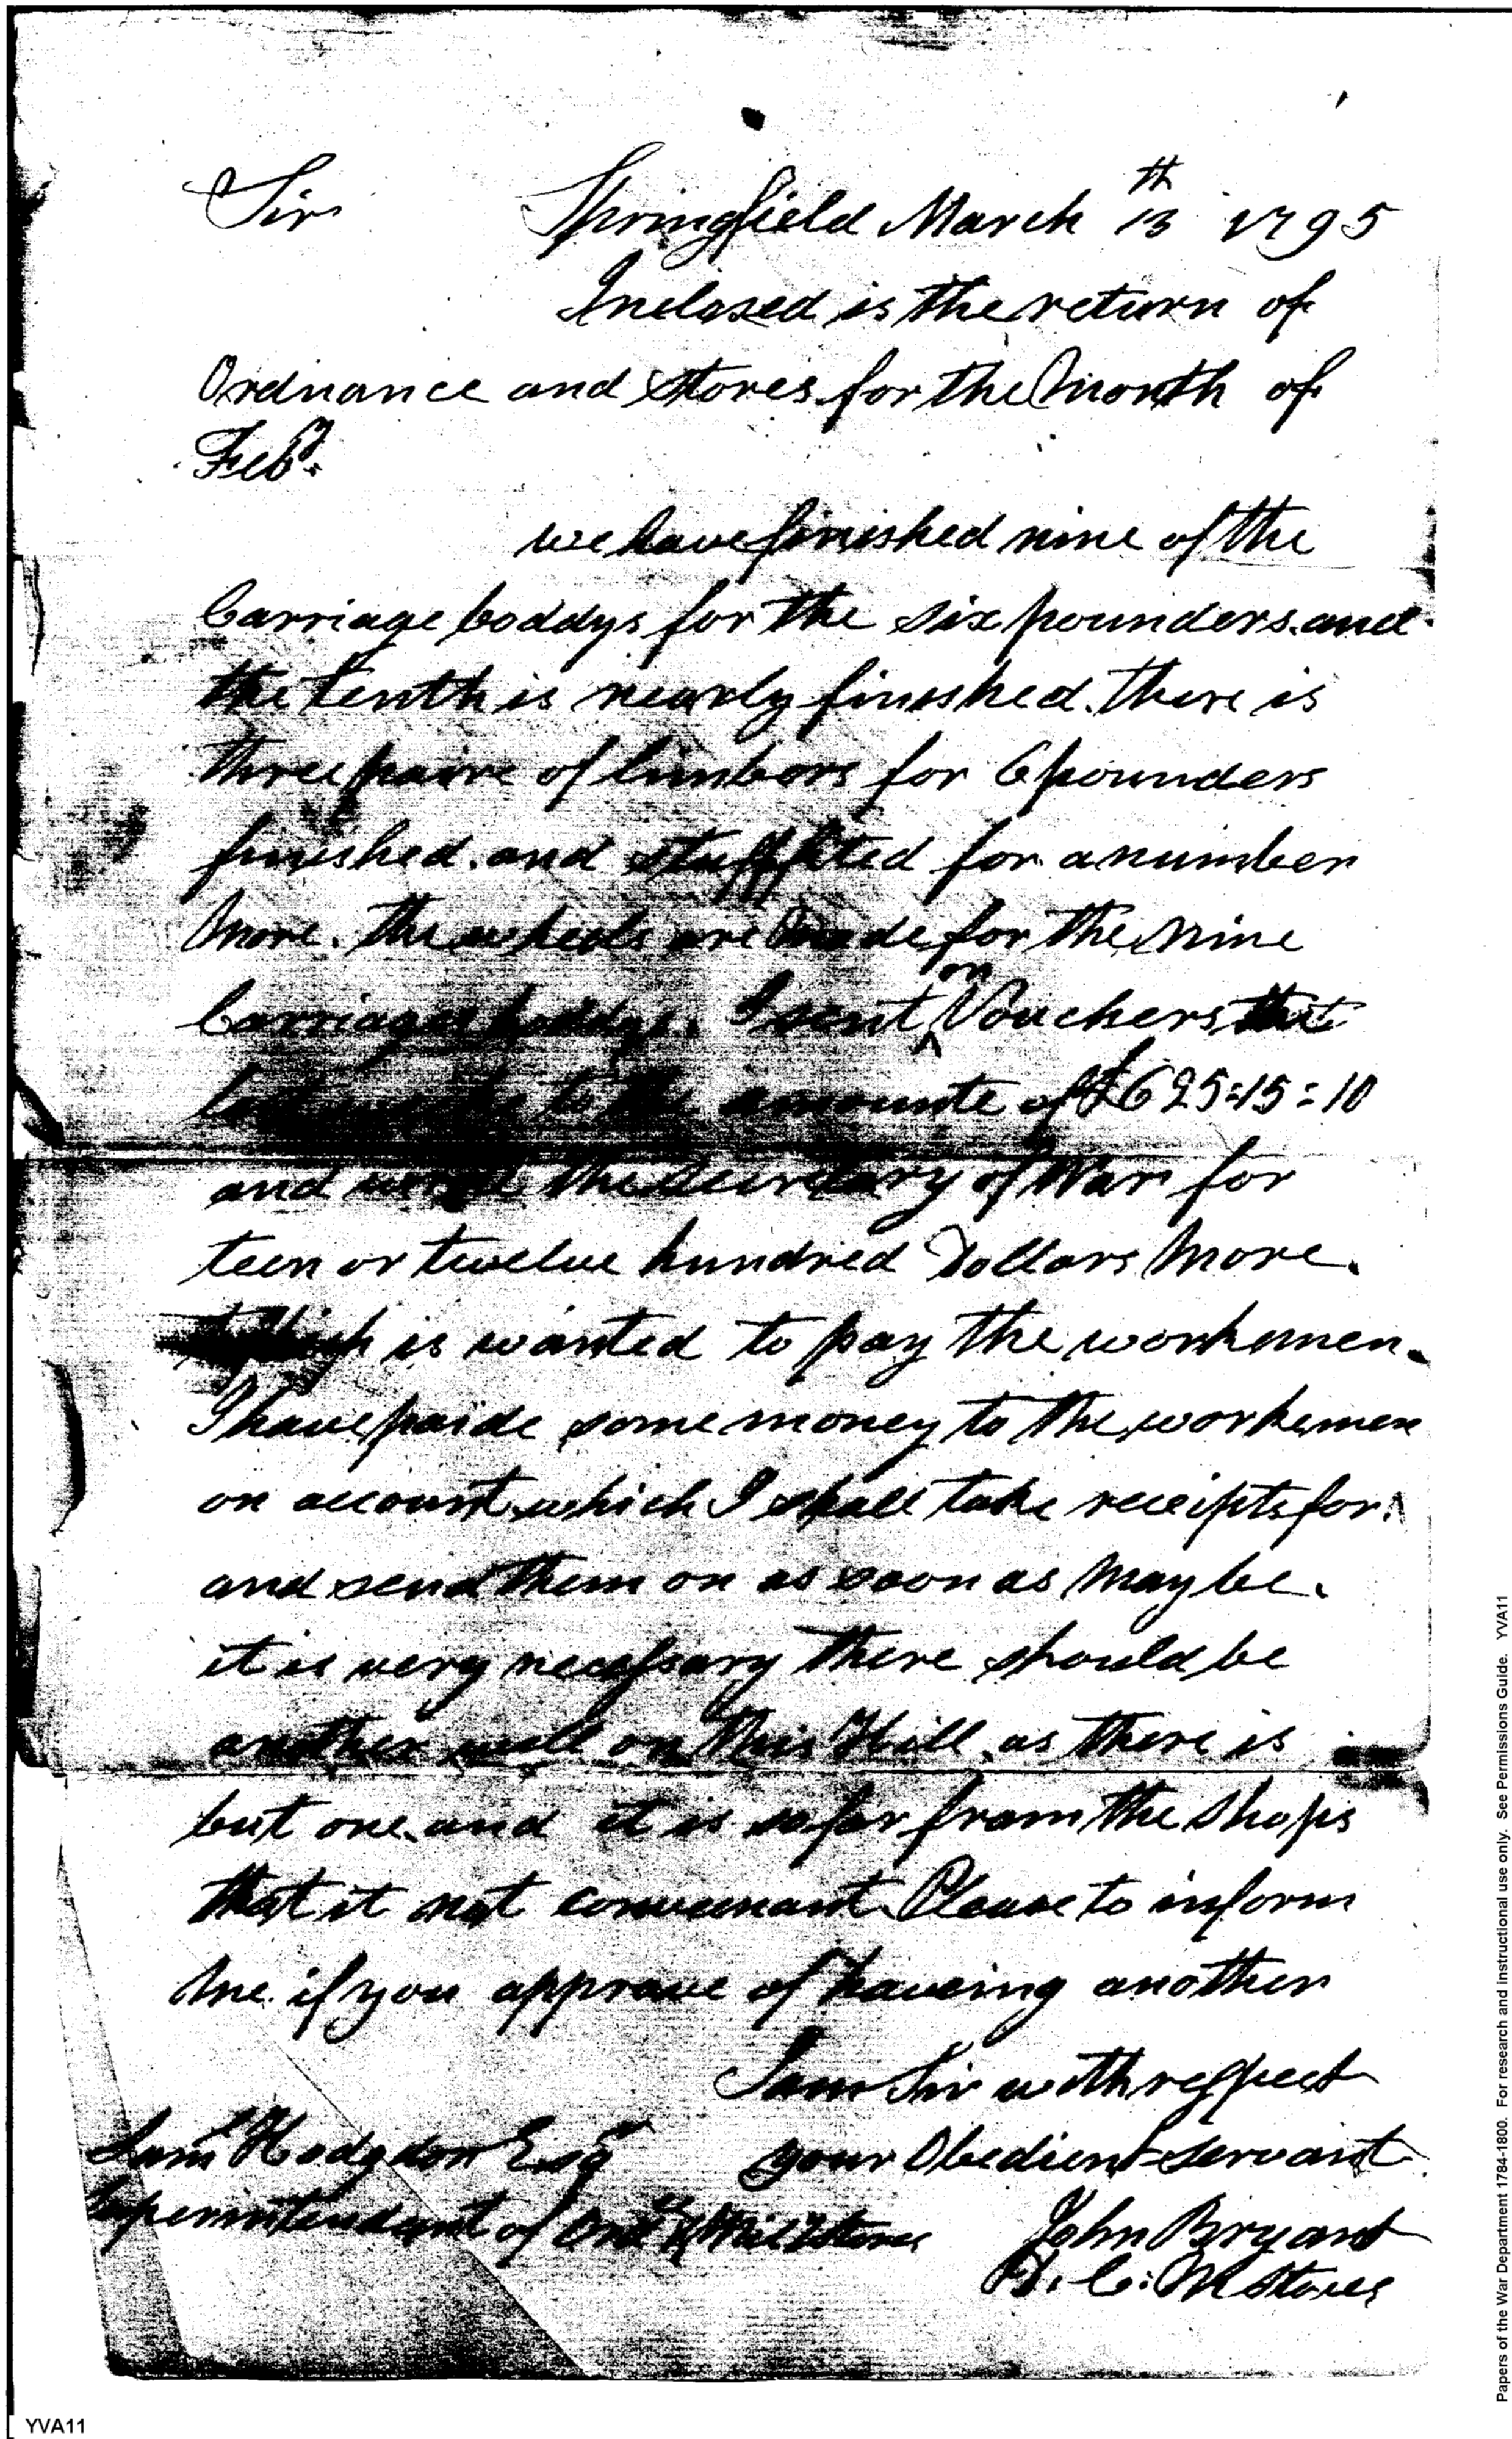 Sir Springfield March 13th 1795
Inclosed is the return of
Ordnance and stores for the Month of
Feby.
we have finished nine of the
Carriage boddys for the six pounders. and
the tenth is nearly finished. there is
three paire of limbors for 6 pounders
finished. and stuff fited for a number
More. the wheels are Made for the Nine
Carriages boddys. I sent on Vouchers that
to the amounte of £625=15=10
and the Secretary of War for
teen or twelve hundred Dollars More.
Which is wanted to pay the workemen.
I have paide some money to the workemen
on account which I shall take receipts for.
and send them on as soon as May be.
it is very necessary there should be
another well on this Hill. as there is
but one. and it is so far from the Shops
that it not conveenant. Please to inform
Me. if you approve of haveing another
I am Sir with respect
your Obedient Servant
Saml Hodgdon Esqr
Superintendant of Ord & Mily Stores
John Bryant
D. C. M Stores
Papers of the War Department 1784-1800. For research and instructional use only. See Permissions Guide. YVA11
YVA11